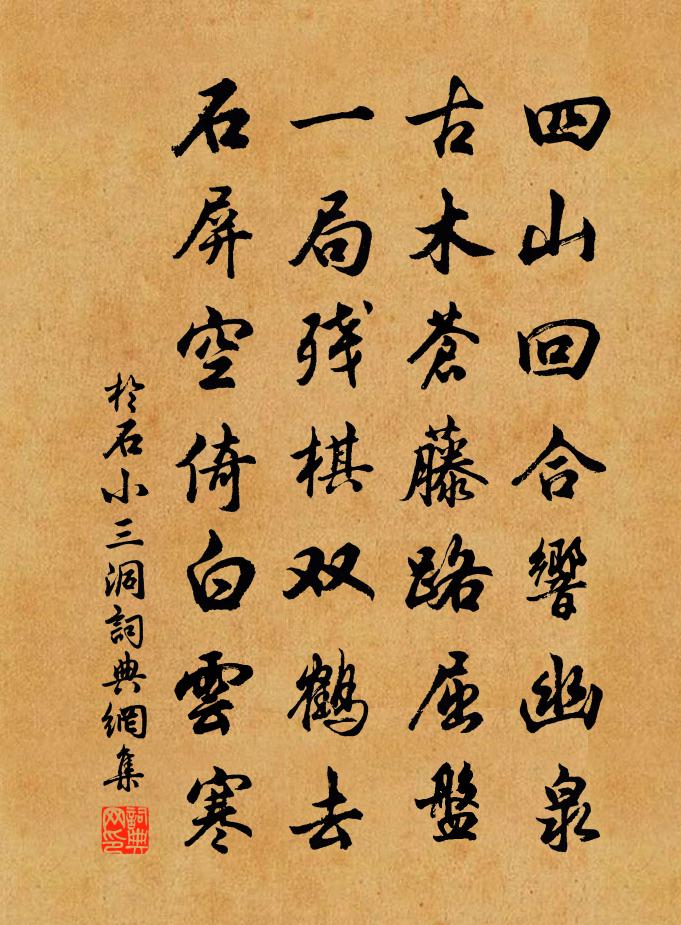 四山回合響幽泉
古木蒼藤路屈盤
一局残棋双鶴去
石屏空倚白雲寒
於石小三洞詞典網集
詞典
网印